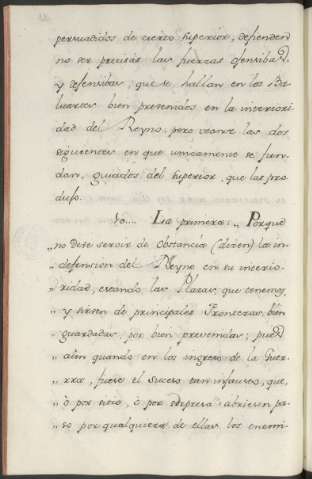 persuadidos de cierto superior, defienden
no ser precisas las fuerzas ofensibas,
y defensibas, que se hallan en los Ba-
luartes bien prevenidos en la interiori-
dad del Reyno, pero veanse las dos
siguientes en que unicamente se fun-
dan, guiados del superior, que las pro-
duso.
10.... La primera: "Porque
" no debe servir de obstancia (diren) la in-
" defension del Reyno en su interio-
" ridad, estando las Plazas, que tenemos,
" y sirben de principales Fronteras, bien
" guardadas, por bien prevenidas; pues
" aún quando en los ingresos de la Guer-
" rra, fuese el suceso tan infausto, que,
" ò por sitio, ò por sorpresa abriesen pa-
" so por qualquiera de ellas, los enemi-